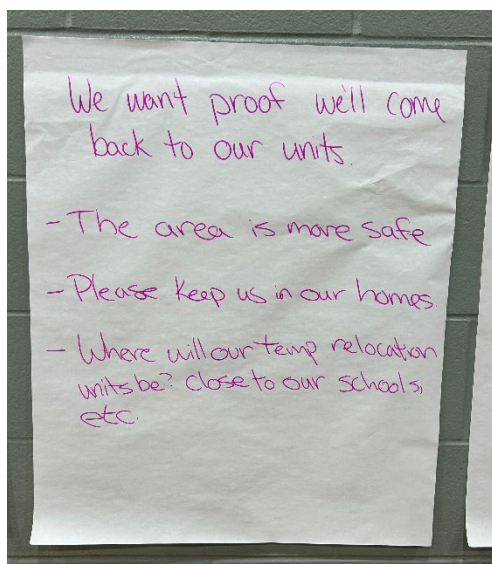 We want proof we'll come
back to our units.
- The area is more safe
- Please keep us in our homes
- Where will our temp relocation
units be? close to our schools,
etc.